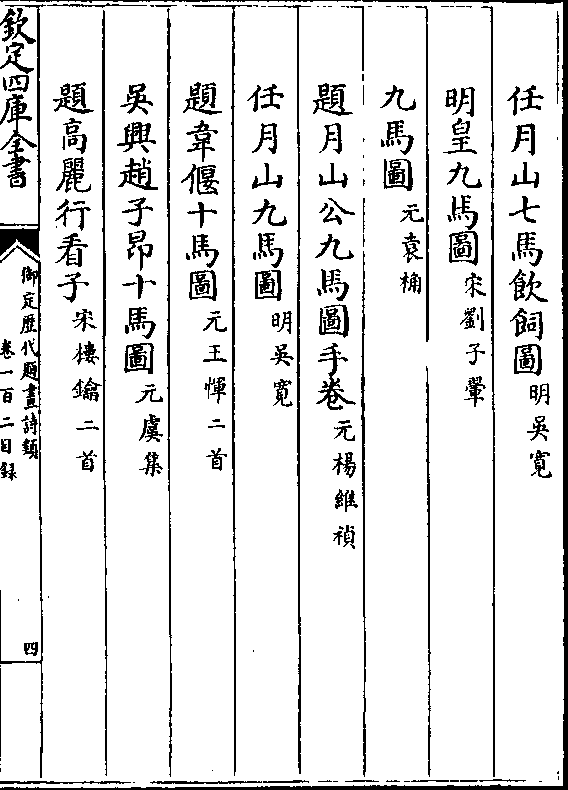 任月山七馬飲飼圖 明吳寛
明皇九馬圖 宋劉子翬
九馬圖 元袁桷
題月山公九馬圖手卷 元楊維禎
任月山九馬圖 明吳寛
題韋偃十馬圖 元王惲二首
吳興趙子昂十馬圖 元虞集
題高麗行看子 宋樓鑰二首
欽定四庫全書
御定歷代題畫詩類
卷一百二目録
四